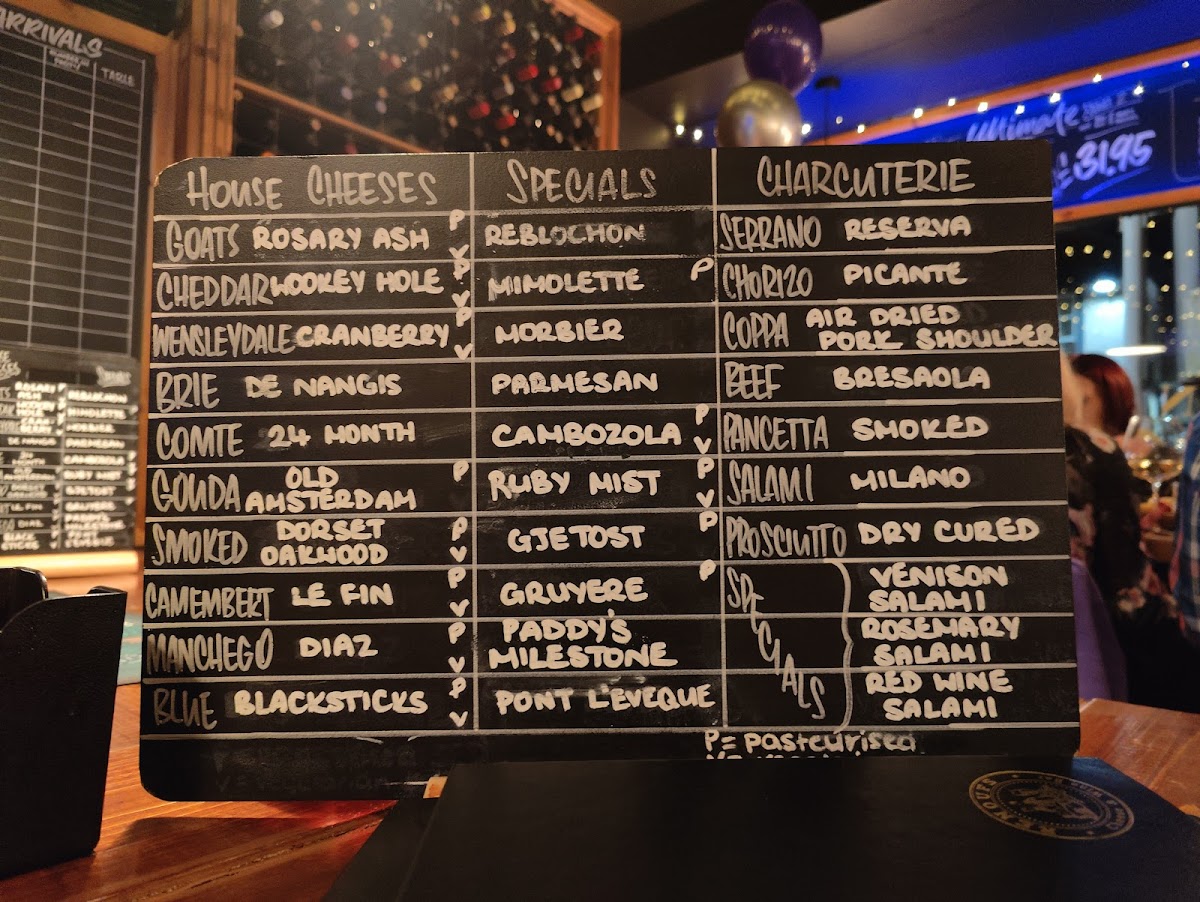 ARRIVALS
TABLE
Ultimate
£31.95
HOUSE CHEESES
SPECIALS
CHARCUTERIE
GOATS ROSARY ASH P V
REBLOCHON
SERRANO RESERVA
CHEDDAR WOOKEY HOLE P V
MIMOLETTE P
CHORIZO PICANTE
WENSLEYDALE CRANBERRY P V
MORBIER
COPPA AIR DRIED
PORK SHOULDER
BRIE DE NANGIS
PARMESAN
BEEF BRESAOLA
COMTE 24 MONTH
CAMBOZOLA P V
PANCETTA SMOKED
GOUDA OLD
AMSTERDAM P
RUBY MIST P V
SALAMI MILANO
SMOKED DORSET
OAKWOOD P V
GJETOST P
PROSCIUTTO DRY CURED
CAMEMBERT LE FIN P V
GRUYERE P
SPECIALS
VENISON
SALAMI
MANCHEGO DIAZ P V
PADDY'S
MILESTONE
ROSEMARY
SALAMI
BLUE BLACKSTICKS P V
PONT L'EVEQUE
RED WINE
SALAMI
P = Pasteurised